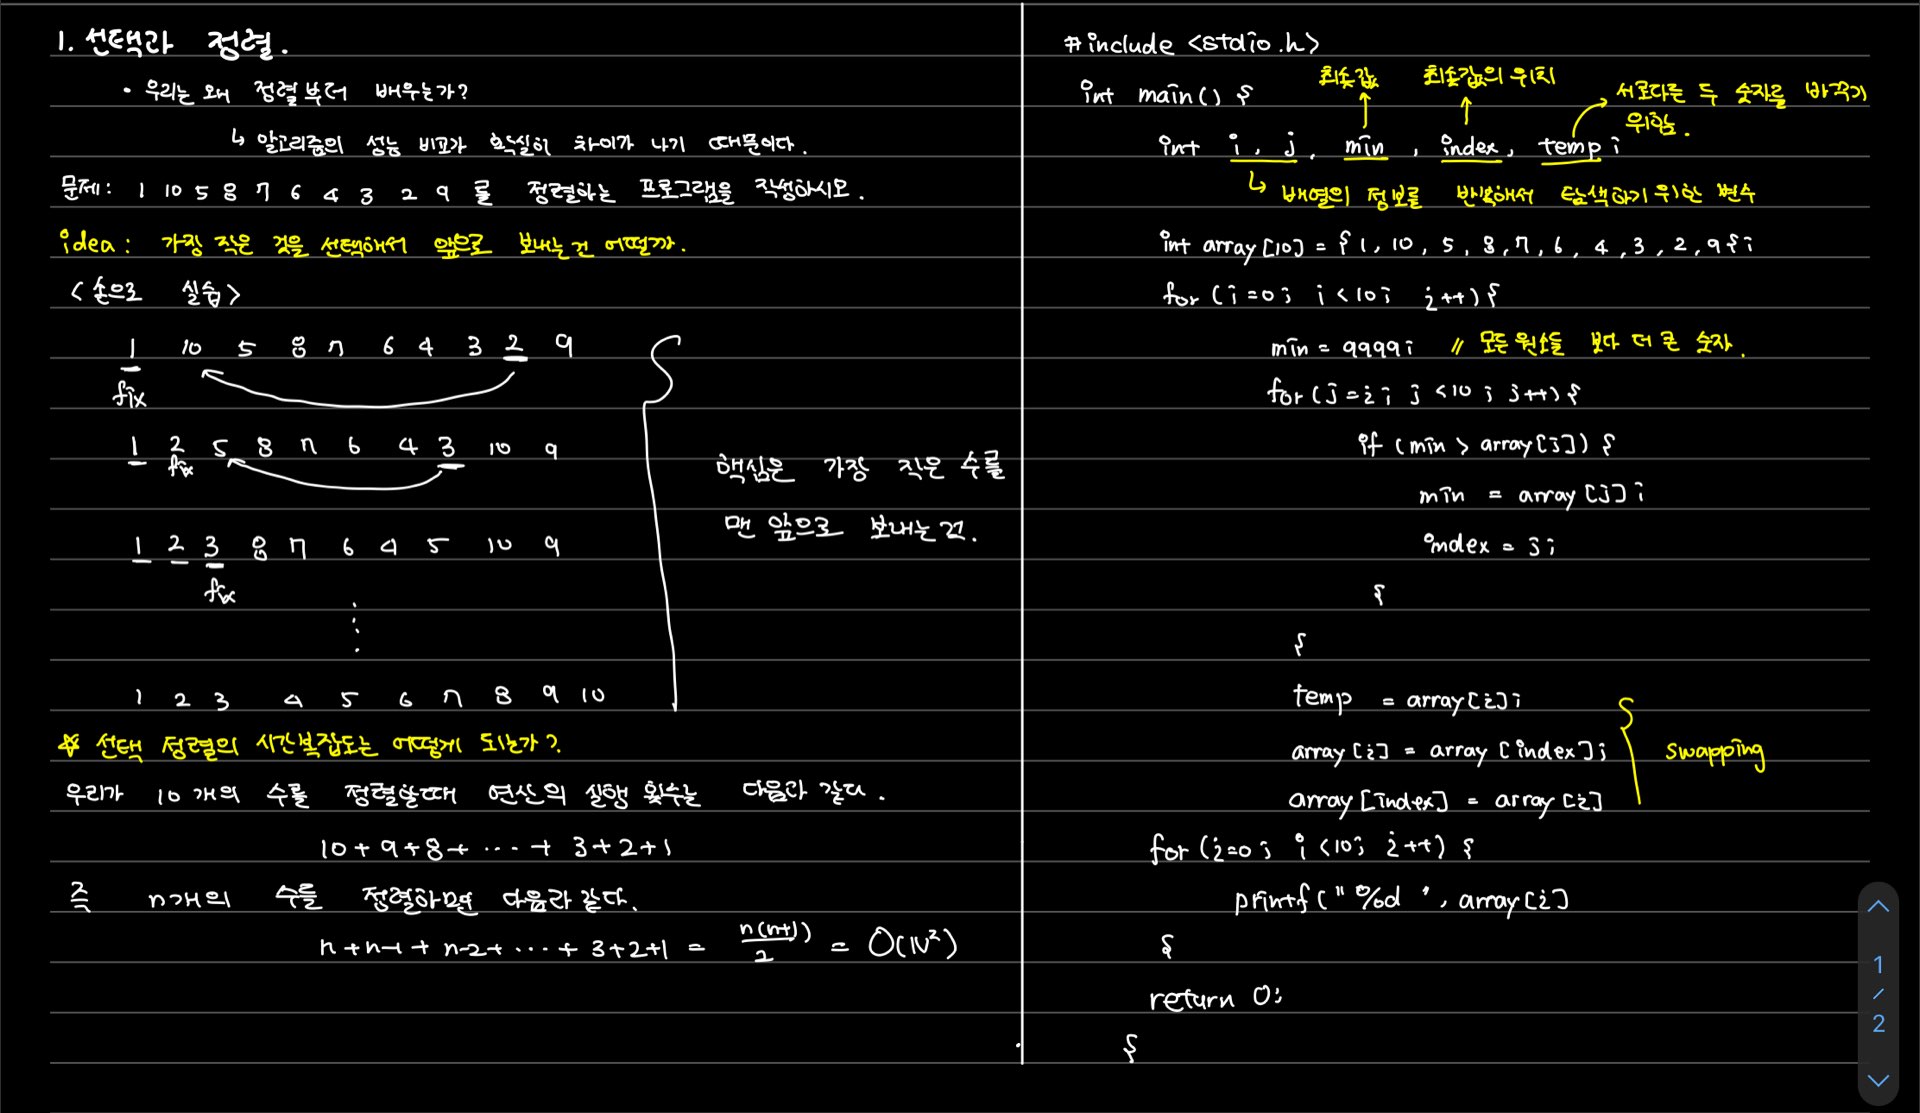 1. 선택과 정렬.
· 우리는 왜 정렬부터 배우는가?
↳ 알고리즘의 성능 비교가 확실히 차이가 나기 때문이다.
문제: 1 10 5 8 7 6 4 3 2 9 를 정렬하는 프로그램을 작성하시오.
idea: 가장 작은 것을 선택해서 앞으로 보내는건 어떨까.
<손으로 실습>
1 10 5 8 7 6 4 3 2 9
fix
1 2 5 8 7 6 4 3 10 9
fix
1 2 3 8 7 6 4 5 10 9
fix
⋮
1 2 3 4 5 6 7 8 9 10
핵심은 가장 작은 수를
맨 앞으로 보내는것.
☆ 선택 정렬의 시간복잡도는 어떻게 되는가?
우리가 10개의 수를 정렬할때 연산의 실행 횟수는 다음과 같다.
10+9+8+ ··· + 3+2+1
즉 n개의 수를 정렬하면 다음과 같다.
n+n-1+ n-2+ ··· + 3+2+1 = n(n+1)/2 = O(N²)
#include <stdio.h>
최솟값 최솟값의 위치 서로다른 두 숫자를 바꾸기
위함.
int main() {
int i, j, min, index, temp;
↳ 배열의 정보를 반복해서 탐색하기 위한 변수
int array[10] = {1, 10, 5, 8, 7, 6, 4, 3, 2, 9};
for (i=0; i<10; i++){
min = 9999; // 모든 원소들 보다 더 큰 숫자.
for (j=i; j<10; j++){
if (min > array[j]) {
min = array[j];
index = j;
}
}
temp = array[i];
array[i] = array[index];
array[index] = array[i]
swapping
for (i=0; i<10; i++) {
printf("%d ", array[i]
}
return 0;
}
1
/
2